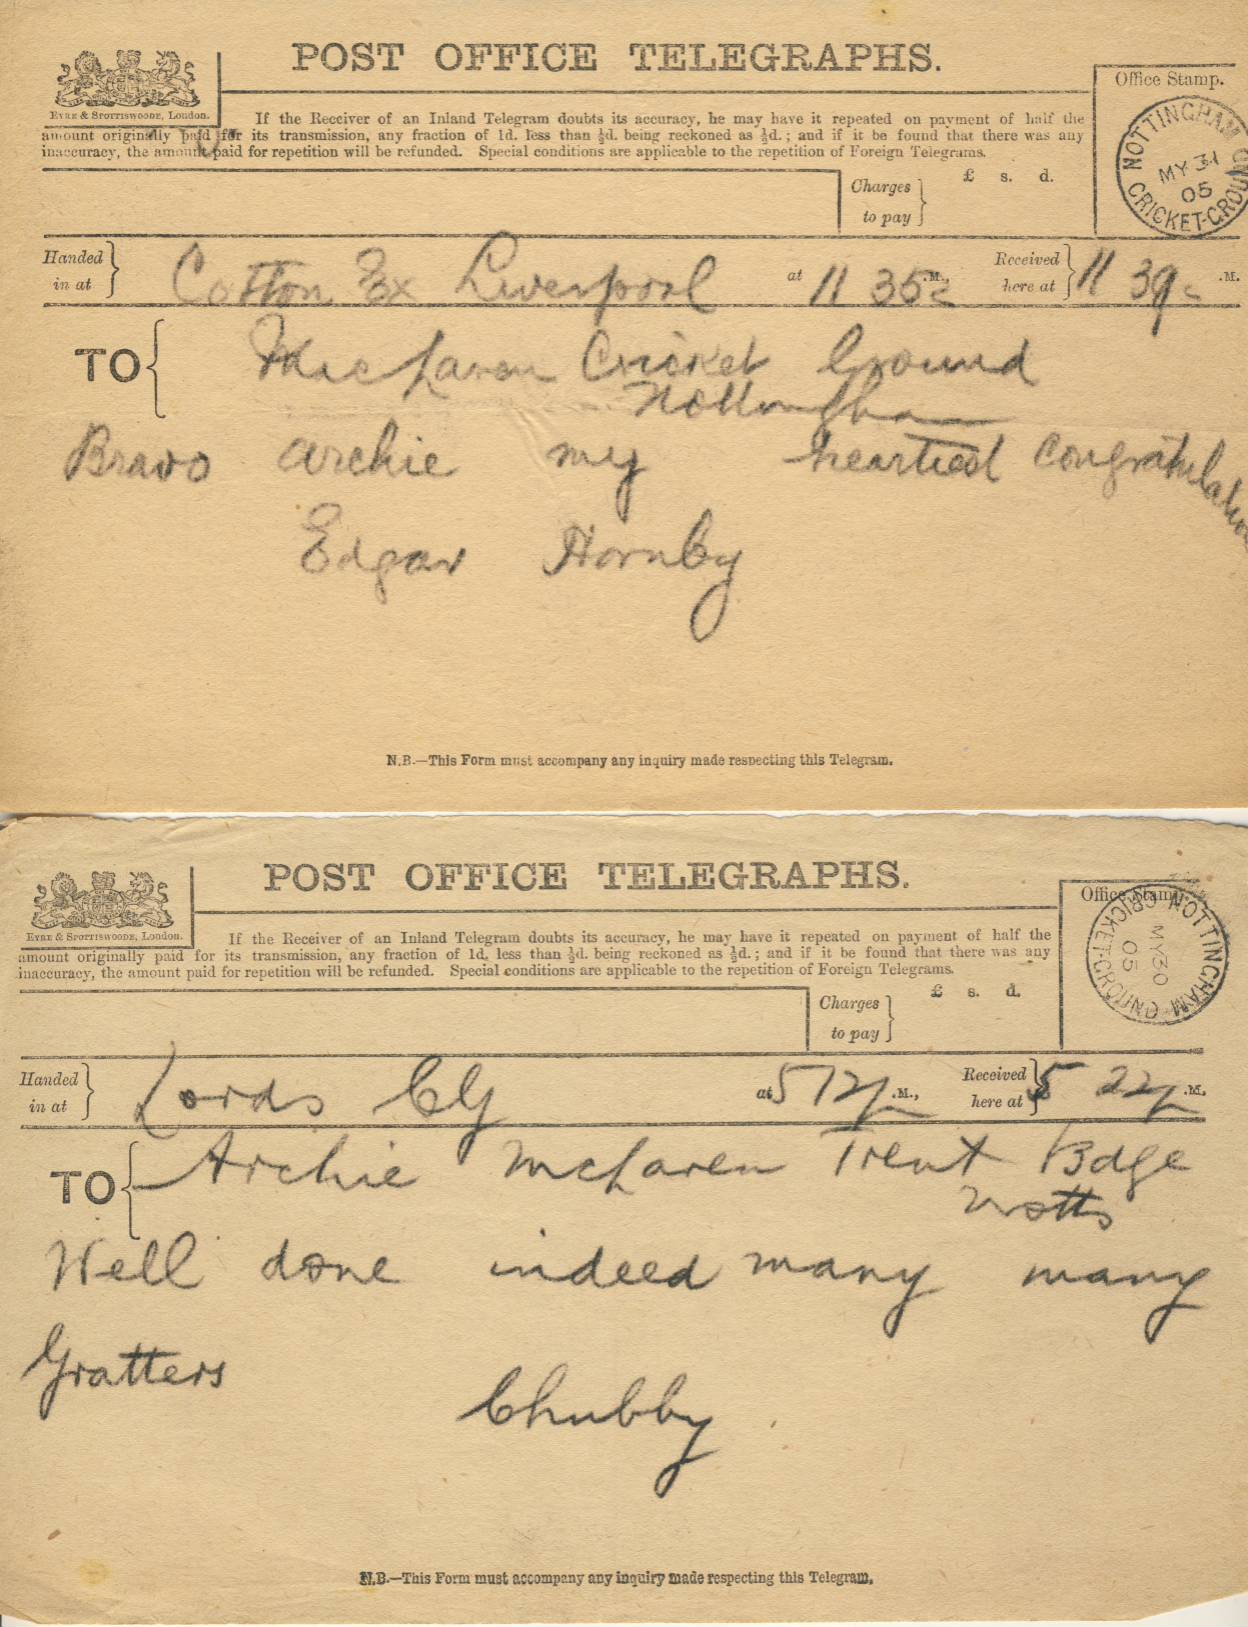 POST OFFICE TELEGRAPHS.
EYRE & SPOTTISWOODE, LONDON.
Office Stamp.
NOTTINGHAM CRICKET-GROUND
MY 31
05
If the Receiver of an Inland Telegram doubts its accuracy, he may have it repeated on payment of half the
amount originally paid for its transmission, any fraction of 1d. less than ½d. being reckoned as ½d.; and if it be found that there was any
inaccuracy, the amount paid for repetition will be refunded. Special conditions are applicable to the repetition of Foreign Telegrams.
Charges to pay } £ s. d.
Handed in at } Cotton Ex Liverpool at 11 35 .M., Received here at } 11 39 .M.
TO { MacLaren Cricket Ground
Nottingham
Bravo archie my heartiest Congratulations
Edgar Hornby
N.B.—This Form must accompany any inquiry made respecting this Telegram.
POST OFFICE TELEGRAPHS.
EYRE & SPOTTISWOODE, London.
Office Stamp.
NOTTINGHAM CRICKET-GROUND
MY 30
05
If the Receiver of an Inland Telegram doubts its accuracy, he may have it repeated on payment of half the
amount originally paid for its transmission, any fraction of 1d. less than ½d. being reckoned as ½d.; and if it be found that there was any
inaccuracy, the amount paid for repetition will be refunded. Special conditions are applicable to the repetition of Foreign Telegrams.
Charges to pay } £ s. d.
Handed in at } Lords CG at 5 12p .M., Received here at } 5 22p .M.
TO { Archie McLaren Trent Bdge
Notts
Well done indeed many many
Gratters
Chubby
N.B.—This Form must accompany any inquiry made respecting this Telegram.